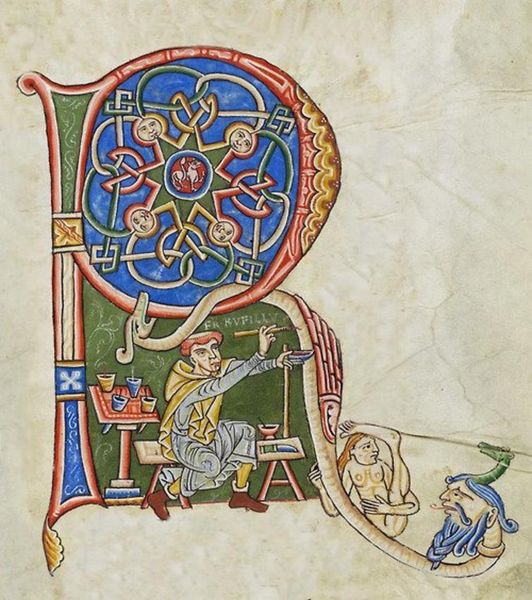 R
FR RVFILLV